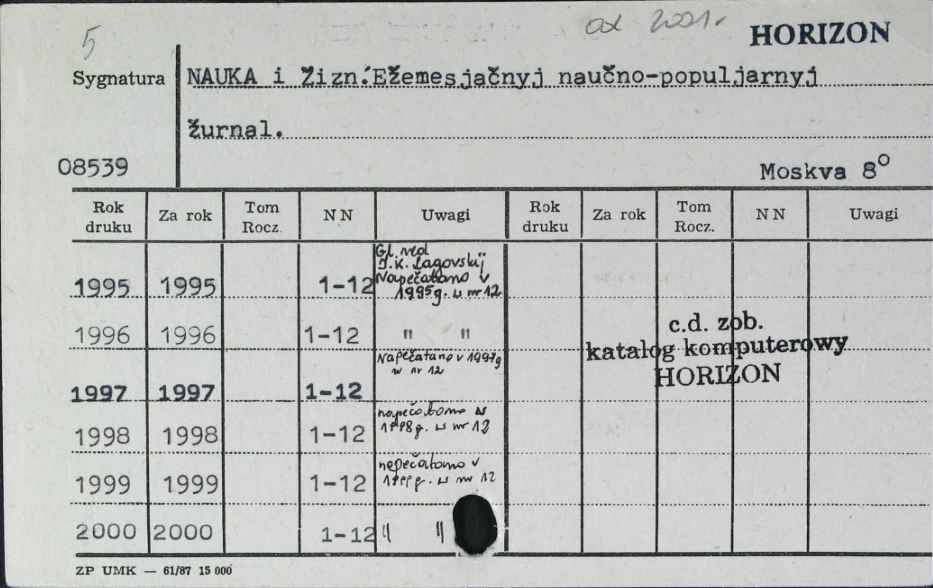 5
od 2001r
HORIZON
Sygnatura
NAUKA i Žizn.Ežemesjačnyj naučno-populjarnyj
žurnal.
08539
Moskva 8°
Rok druku Za rok Tom Rocz. NN Uwagi Rok druku Za rok Tom Rocz. NN Uwagi
Gl. red
I.K. Lagovskij
Napečatano v
1995g. w nr 12
1995 1995 1-12
1996 1996 1-12 " "
c.d. zob.
katalog komputerowy
HORIZON
Napečatano v 1997g
w nr 12
1997 1997 1-12
napečatano w
1998g. w nr 12
1998 1998 1-12
nepečatano v
1999g. w nr 12
1999 1999 1-12
2000 2000 1-12 " "
ZP UMK — 61/87 15 000